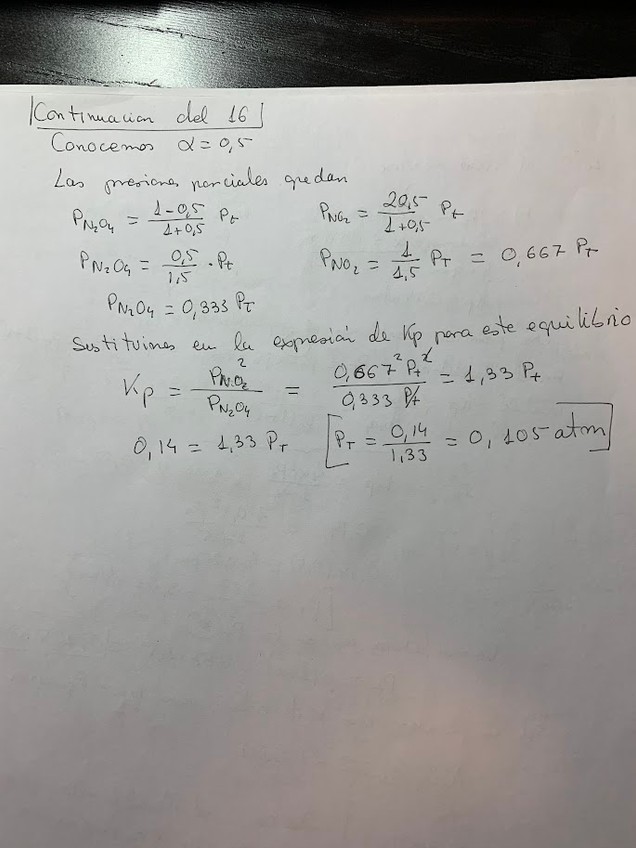 Continuacion del 16
Conocemos α = 0,5
Las presiones parciales quedan
P_N₂O₄ = (1-0,5)/(1+0,5) Pt    P_NO₂ = (2 0,5)/(1+0,5) Pt
P_N₂O₄ = 0,5/1,5 · Pt    P_NO₂ = 1/1,5 P_T = 0,667 P_T
P_N₂O₄ = 0,333 P_T
Sustituimos en la expresión de Kp para este equilibrio
Kp = P_NO₂²/P_N₂O₄ = 0,667² Pt²/0,333 Pt = 1,33 Pt
0,14 = 1,33 P_T    [P_T = 0,14/1,33 = 0,105 atm]